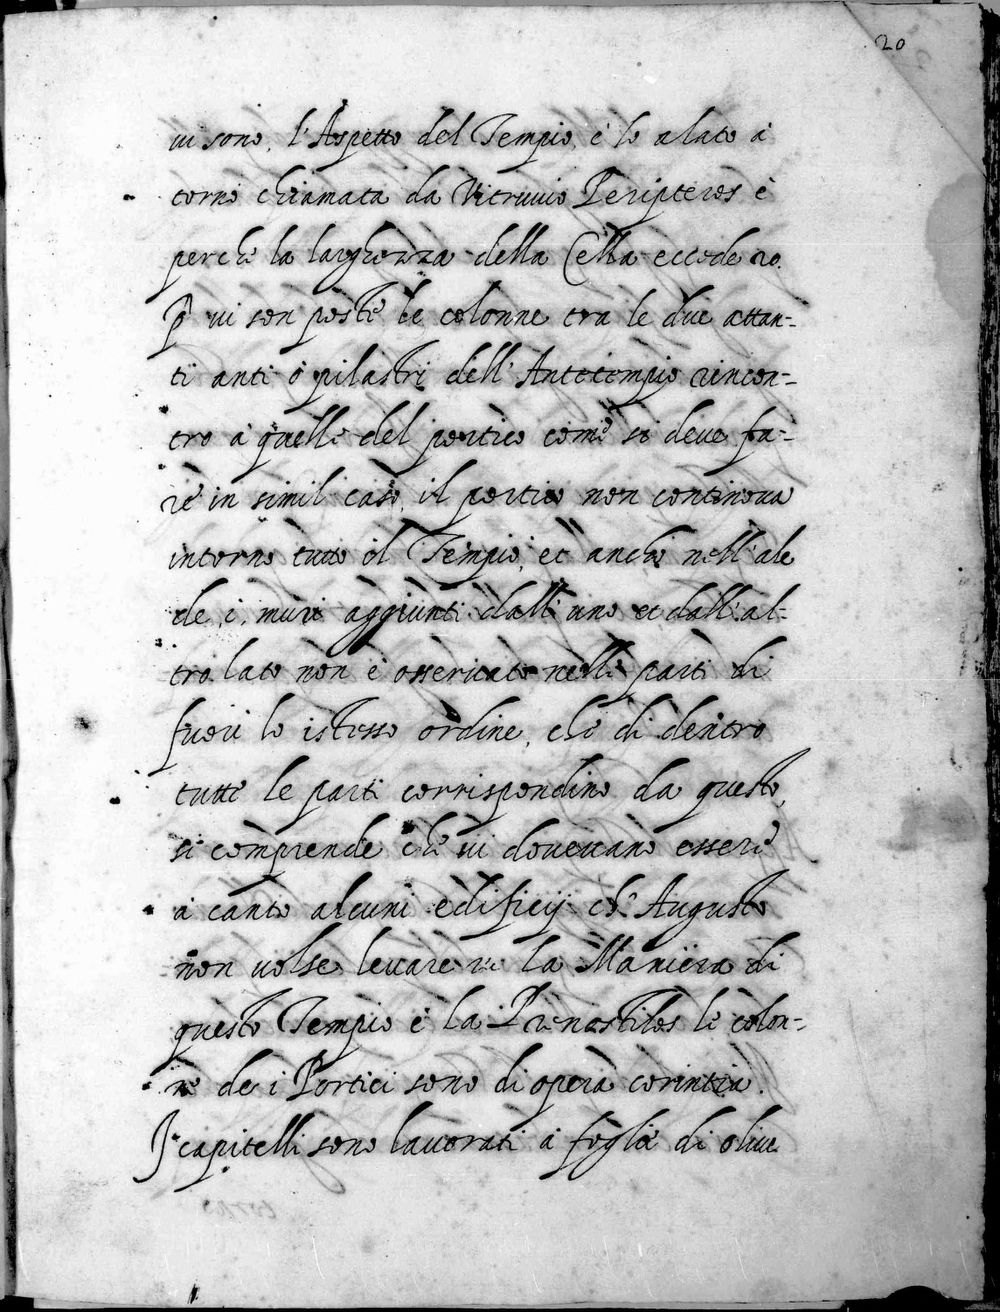 20
ui sono, l'Aspetto del Tempio, è lo alato à
torno chiamata da Vitruuio Peripteros è
perche la larghezza della Cella eccede 20.
P ui son poste le colonne tra le due attan-
ti anti ò pilastri dell'Antetempio rincon-
tro à quelle del portico come si deue fa-
re in simil caso, il portico non continoua
intorno tutto il Tempio, et anche nell'ale
de i muri aggiunti dall'uno et dall'al-
tro lato non è osseruato nelle parti di
fuori lo istesso ordine, che di dentro
tutte le parti corrispondino da questo,
si comprende che ui doueuano essere
à canto alcuni edificij ch'Augusto
non uolse leuare uia la Maniera di
questo Tempio è la Picnostilos le colon-
ne de i Portici sono di opera corintia.
J capitelli sono lauorati à foglie di oliue